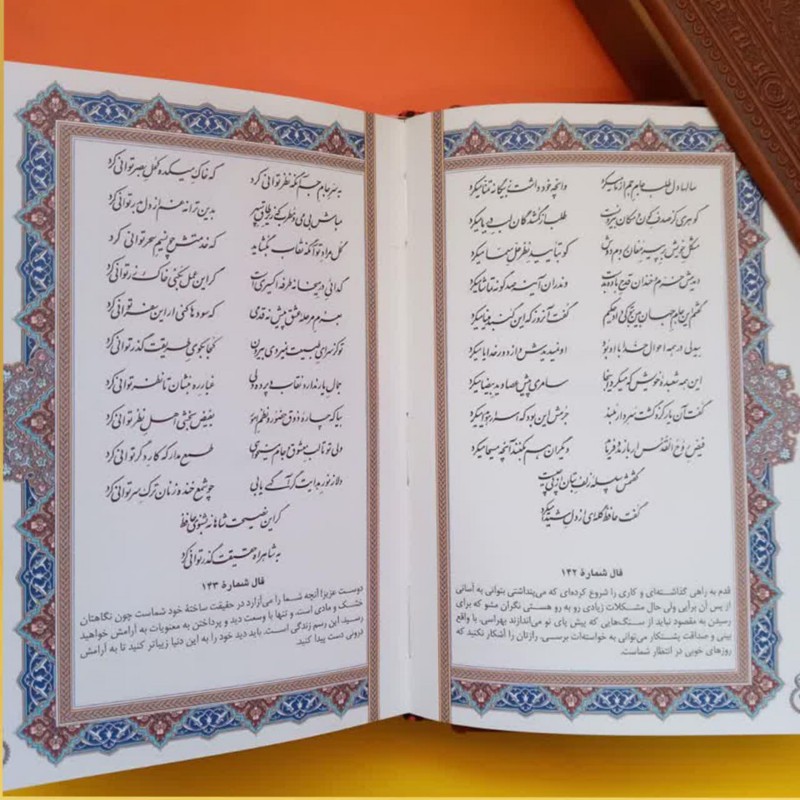 سالها دل طلب جام جم از ما میکرد وانچه خود داشت ز بیگانه تمنا میکرد
گوهری کز صدف کون و مکان بیرونست طلب از گمشدگان لب دریا میکرد
مشکل خویش بر پیر مغان بردم دوش کو بتأیید نظر حل معما میکرد
دیدمش خرم و خندان قدح باده بدست وندران آینه صد گونه تماشا میکرد
گفتم این جام جهان بین بتو کی داد حکیم گفت آنروز که این گنبد مینا میکرد
بیدلی در همه احوال خدا با او بود او نمیدیدش و از دور خدایا میکرد
این همه شعبده خویش که میکرد اینجا سامری پیش عصا و ید بیضا میکرد
گفت آن یار کزو گشت سر دار بلند جرمش این بود که اسرار هویدا میکرد
فیض روح القدس ار باز مدد فرماید دیگران هم بکنند آنچه مسیحا میکرد
گفتمش سلسله زلف بتان از پی چیست
گفت حافظ گله‌ای از دل شیدا میکرد
فال شمارهٔ ۱۴۲
قدم به راهی گذاشته‌ای و کاری را شروع کرده‌ای که می‌پنداشتی بتوانی به آسانی
از پس آن برآیی ولی حال مشکلات زیادی رو به رو هستی نگران مشو که برای
رسیدن به مقصود نباید از سنگ‌هایی که پیش پای تو می‌اندازند بهراسی. با واقع
بینی و صداقت پشتکار می‌توانی به خواسته‌ات برسی. رازتان را آشکار نکنید که
روزهای خوبی در انتظار شماست.
به سر جام جم آنگه نظر توانی کرد که خاک میکده کحل بصر توانی کرد
مباش بی می و مطرب که زیر طاق سپهر بدین ترانه غم از دل بدر توانی کرد
گل مراد تو آنگه نقاب بگشاید که خدمتش چو نسیم سحر توانی کرد
گدائی در میخانه طرفه اکسیریست گر این عمل بکنی خاک زر توانی کرد
بعزم مرحله عشق پیش نه قدمی که سودها کنی ار این سفر توانی کرد
تو کز سرای طبیعت نمیروی بیرون کجا بکوی طریقت گذر توانی کرد
جمال یار ندارد نقاب و پرده ولی غبار ره بنشان تا نظر توانی کرد
بیا که چاره ذوق حضور و نظم امور بفیض بخشی اهل نظر توانی کرد
ولی تو تا لب معشوق و جام می خواهی طمع مدار که کار دگر توانی کرد
دلا ز نور هدایت گر آگهی یابی چو شمع خنده زنان ترک سر توانی کرد
گر این نصیحت شاهانه بشنوی حافظ
به شاهراه حقیقت گذر توانی کرد
فال شمارهٔ ۱۴۳
دوست عزیز! آنچه شما را می‌آزارد در حقیقت ساختهٔ خود شماست چون نگاهتان
خشک و مادی است. و تنها با وسعت دید و پرداختن به معنویات به آرامش خواهید
رسید. این رسم زندگی است. باید دید خود را به این دنیا زیباتر کنید تا به آرامش
درونی دست پیدا کنید.